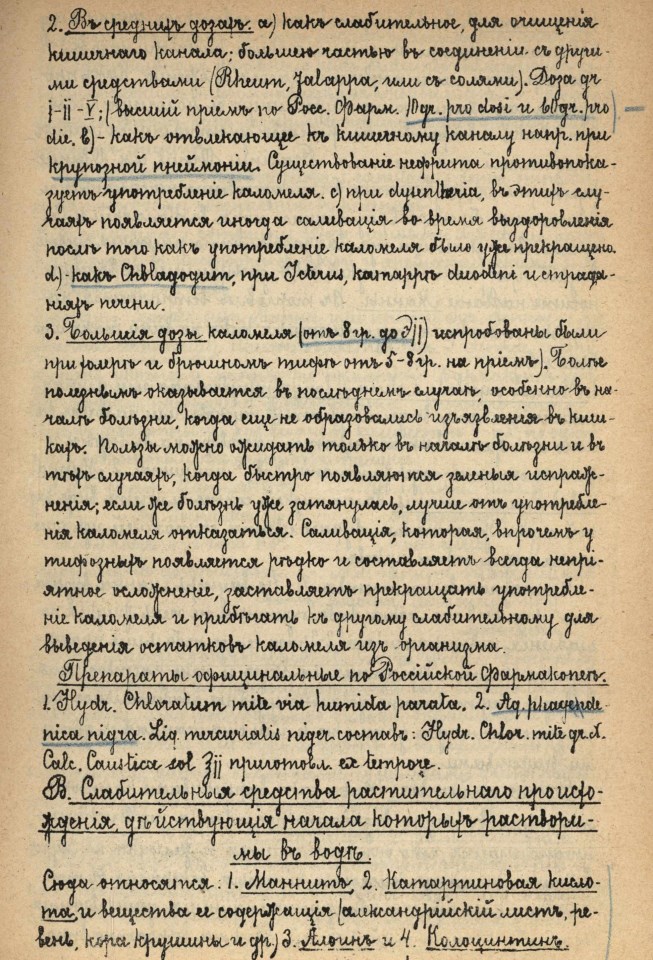 2. Въ среднихъ дозахъ. а) какъ слабительное, для очищенія
кишечнаго канала; большею частью въ соединеніи съ други-
ми средствами (Rheum, Jalappa, или съ солями). Доза gr
i-ii-V; (высшій пріемъ по Росс. Фарм. 10gr. pro dosi и 60gr. pro
die. b)- какъ отвлекающее къ кишечному каналу напр. при
крупозной пнеймоніи. Существованіе нефрита противопока-
зуетъ употребленіе каломеля. с) при dysentheria, въ этихъ слу-
чаяхъ появляется иногда саливація во время выздоровленія
послѣ того какъ употребленіе каломеля было уже прекращено.
d)- какъ Cholagogum, при Icterus, катаррѣ duodeni и страда-
ніяхъ печени.
3. Большія дозы каломеля (отъ 8 гр. до ℈ii) испробованы были
при холерѣ и брюшномъ тифѣ отъ 5-8 гр. на пріемъ). Болѣе
полезнымъ оказывается въ послѣднемъ случаѣ, особенно въ на-
чалѣ болѣзни, когда еще не образовались изъязвленія въ киш-
кахъ. Пользы можно ожидать только въ началѣ болѣзни и въ
тѣхъ случаяхъ, когда быстро появляются зеленыя испраж-
ненія; если же болѣзнь уже затянулась, лучше отъ употребле-
нія каломеля отказаться. Саливація, которая, впрочемъ у
тифозныхъ появляется рѣдко и составляетъ всегда непрі-
ятное осложненіе, заставляетъ прекращать употребле-
ніе каломеля и прибѣгать къ другому слабительному для
выведенія остатковъ каломеля изъ организма.
Препараты официнальные по Россійской Фармакопеѣ.
1. Hydr. Chloratum mite via humida parata. 2. Aq. phagede-
nica nigra. Liq. mercurialis niger. составъ: Hydr. Chlor. mite gr. X.
Calc. Caustica sol ℥ii приготовл. ex tempore.
B. Слабительныя средства растительнаго происхо-
жденія, дѣйствующія начала которыхъ раствори-
мы въ водѣ.
Сюда относятся: 1. Маннитъ, 2. Катартиновая кисло-
та и вещества ее содержащія (александрійскій листъ, ре-
вень, кора крушины и др.) 3. Алоинъ и 4. Колоцинтинъ.